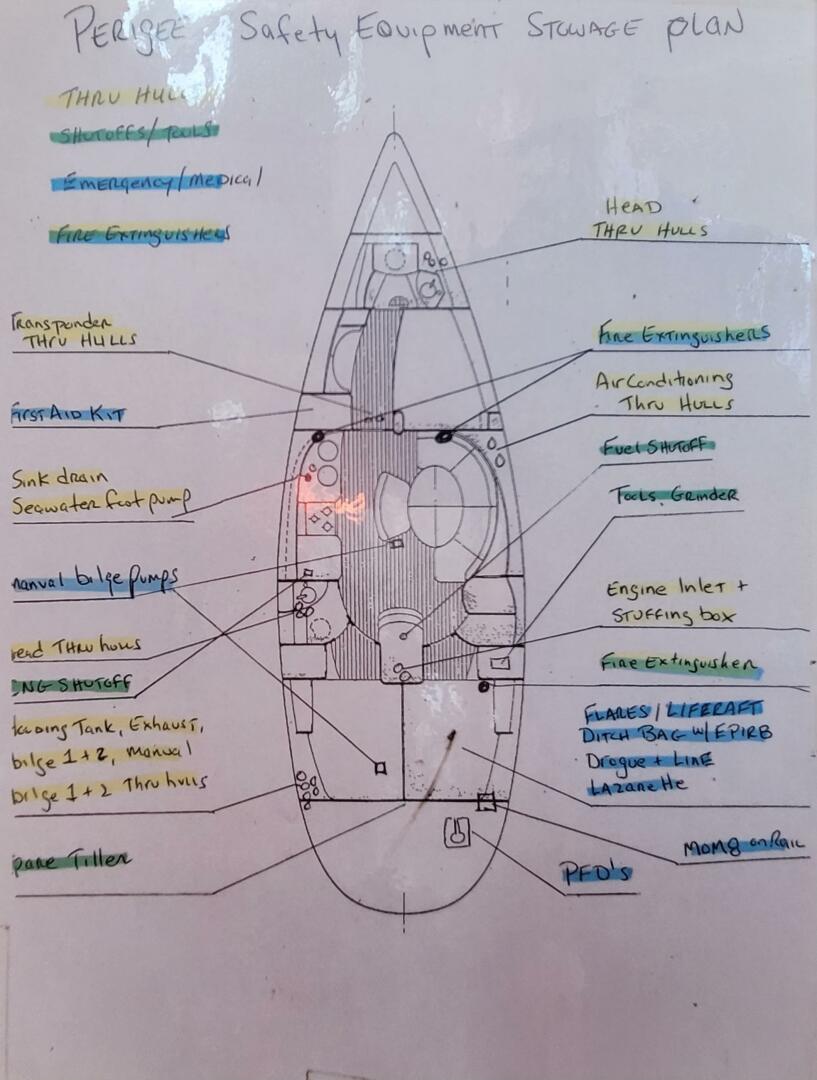 PERIGEE Safety Equipment STOWAGE PLAN
THRU HULL
SHUTOFFS/TOOLS
Emergency/medical
FIRE EXTINGUISHERS
HEAD
THRU HULLS
Transponder
THRU HULLS
Fire Extinguishers
Air Conditioning
Thru HULLS
First AID KIT
Fuel SHUTOFF
Sink drain
Seawater foot pump
Tools, Grinder
manual bilge pumps
Engine Inlet +
STUFFING box
Head THRU hulls
Fire Extinguisher
NG SHUTOFF
FLARES / LIFERAFT
DITCH BAG W/ EPIRB
Drogue + LINE
LAZARETTE
Holding Tank, Exhaust,
bilge 1+2, manual
bilge 1+2 Thru hulls
MOM8 on RAIL
pare Tiller
PFD's